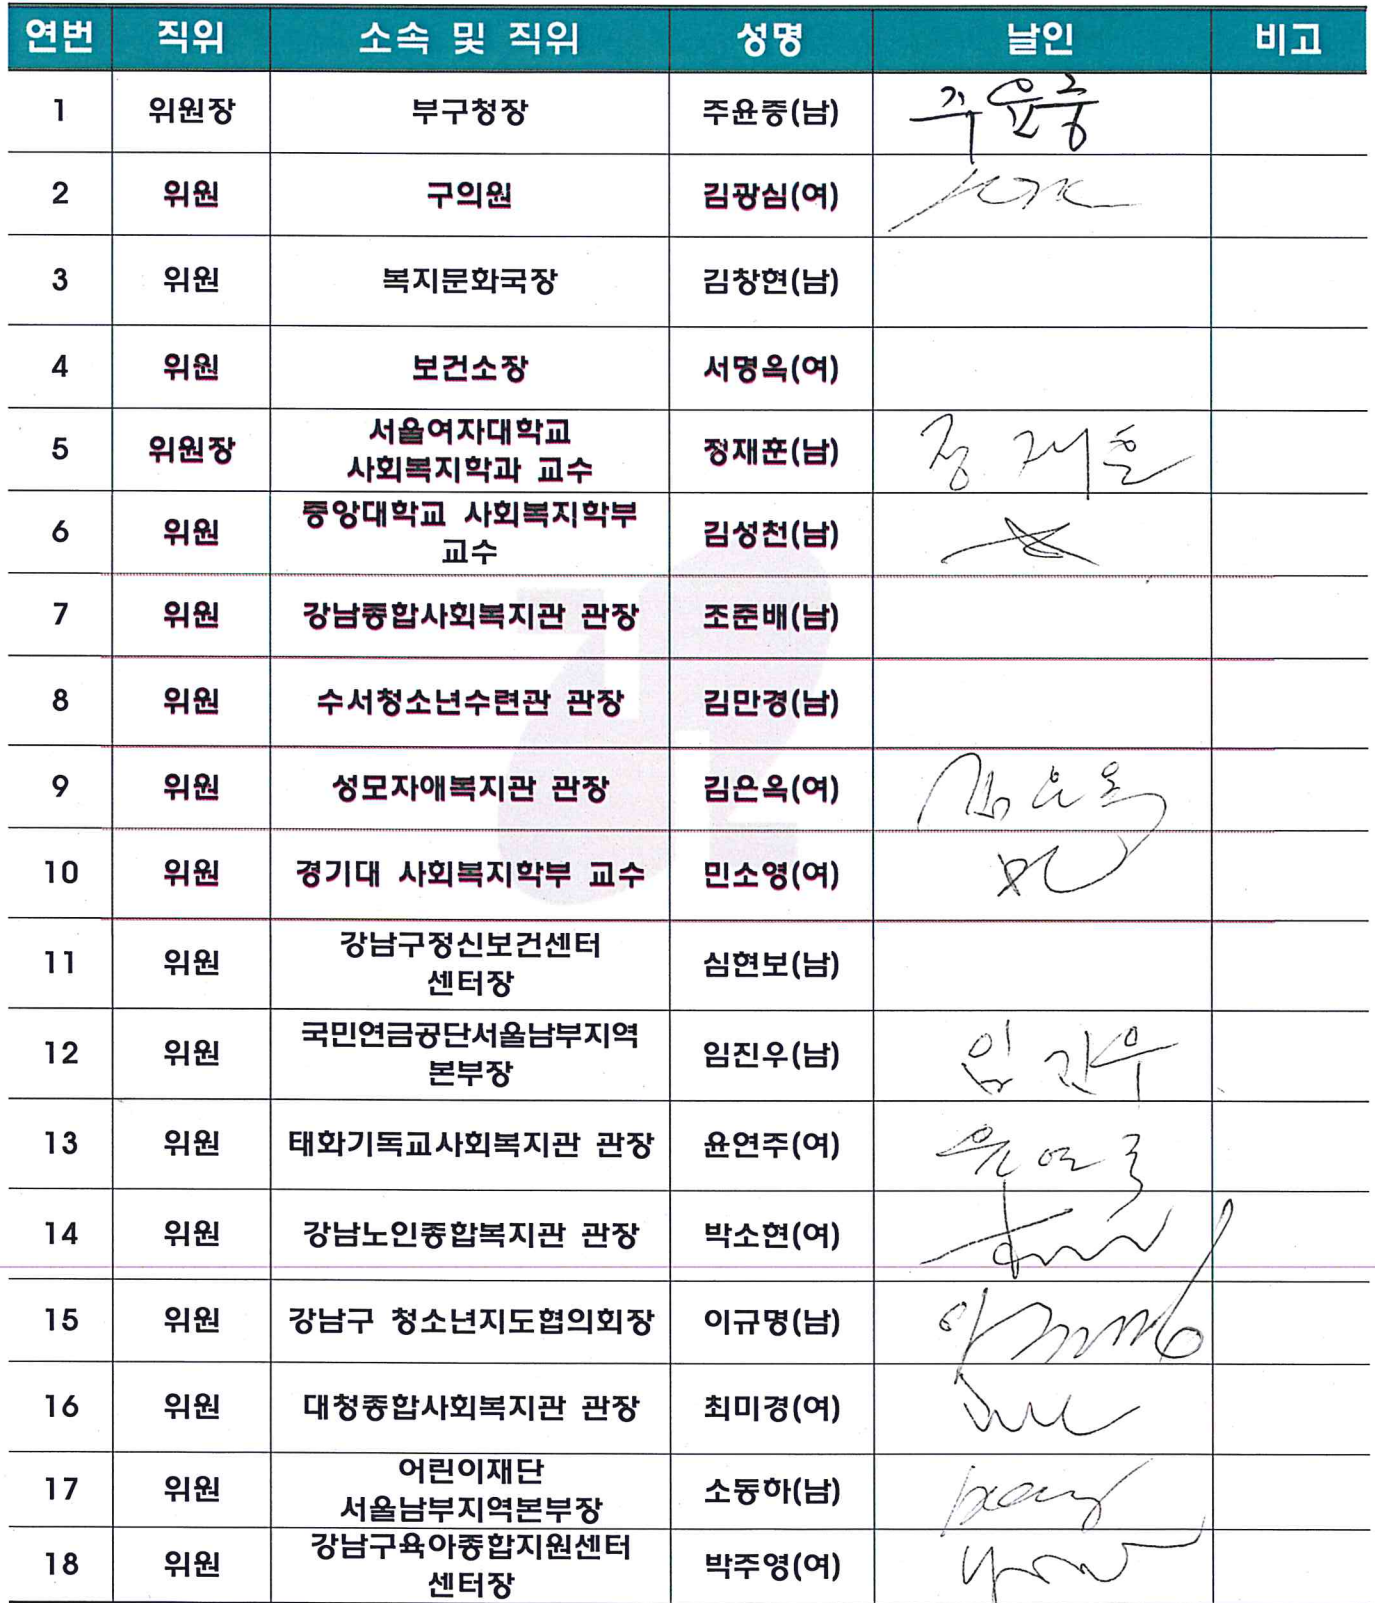 연번 직위 소속 및 직위 성명 날인 비고
1 위원장 부구청장 주윤중(남) 주윤중
2 위원 구의원 김광심(여)
3 위원 복지문화국장 김창현(남)
4 위원 보건소장 서명옥(여)
5 위원장 서울여자대학교
사회복지학과 교수 정재훈(남) 정재훈
6 위원 중앙대학교 사회복지학부
교수 김성천(남)
7 위원 강남종합사회복지관 관장 조준배(남)
8 위원 수서청소년수련관 관장 김만경(남)
9 위원 성모자애복지관 관장 김은옥(여) 김은옥
10 위원 경기대 사회복지학부 교수 민소영(여)
11 위원 강남구정신보건센터
센터장 심현보(남)
12 위원 국민연금공단서울남부지역
본부장 임진우(남) 임진우
13 위원 태화기독교사회복지관 관장 윤연주(여) 윤연주
14 위원 강남노인종합복지관 관장 박소현(여)
15 위원 강남구 청소년지도협의회장 이규명(남)
16 위원 대청종합사회복지관 관장 최미경(여)
17 위원 어린이재단
서울남부지역본부장 소동하(남)
18 위원 강남구육아종합지원센터
센터장 박주영(여)